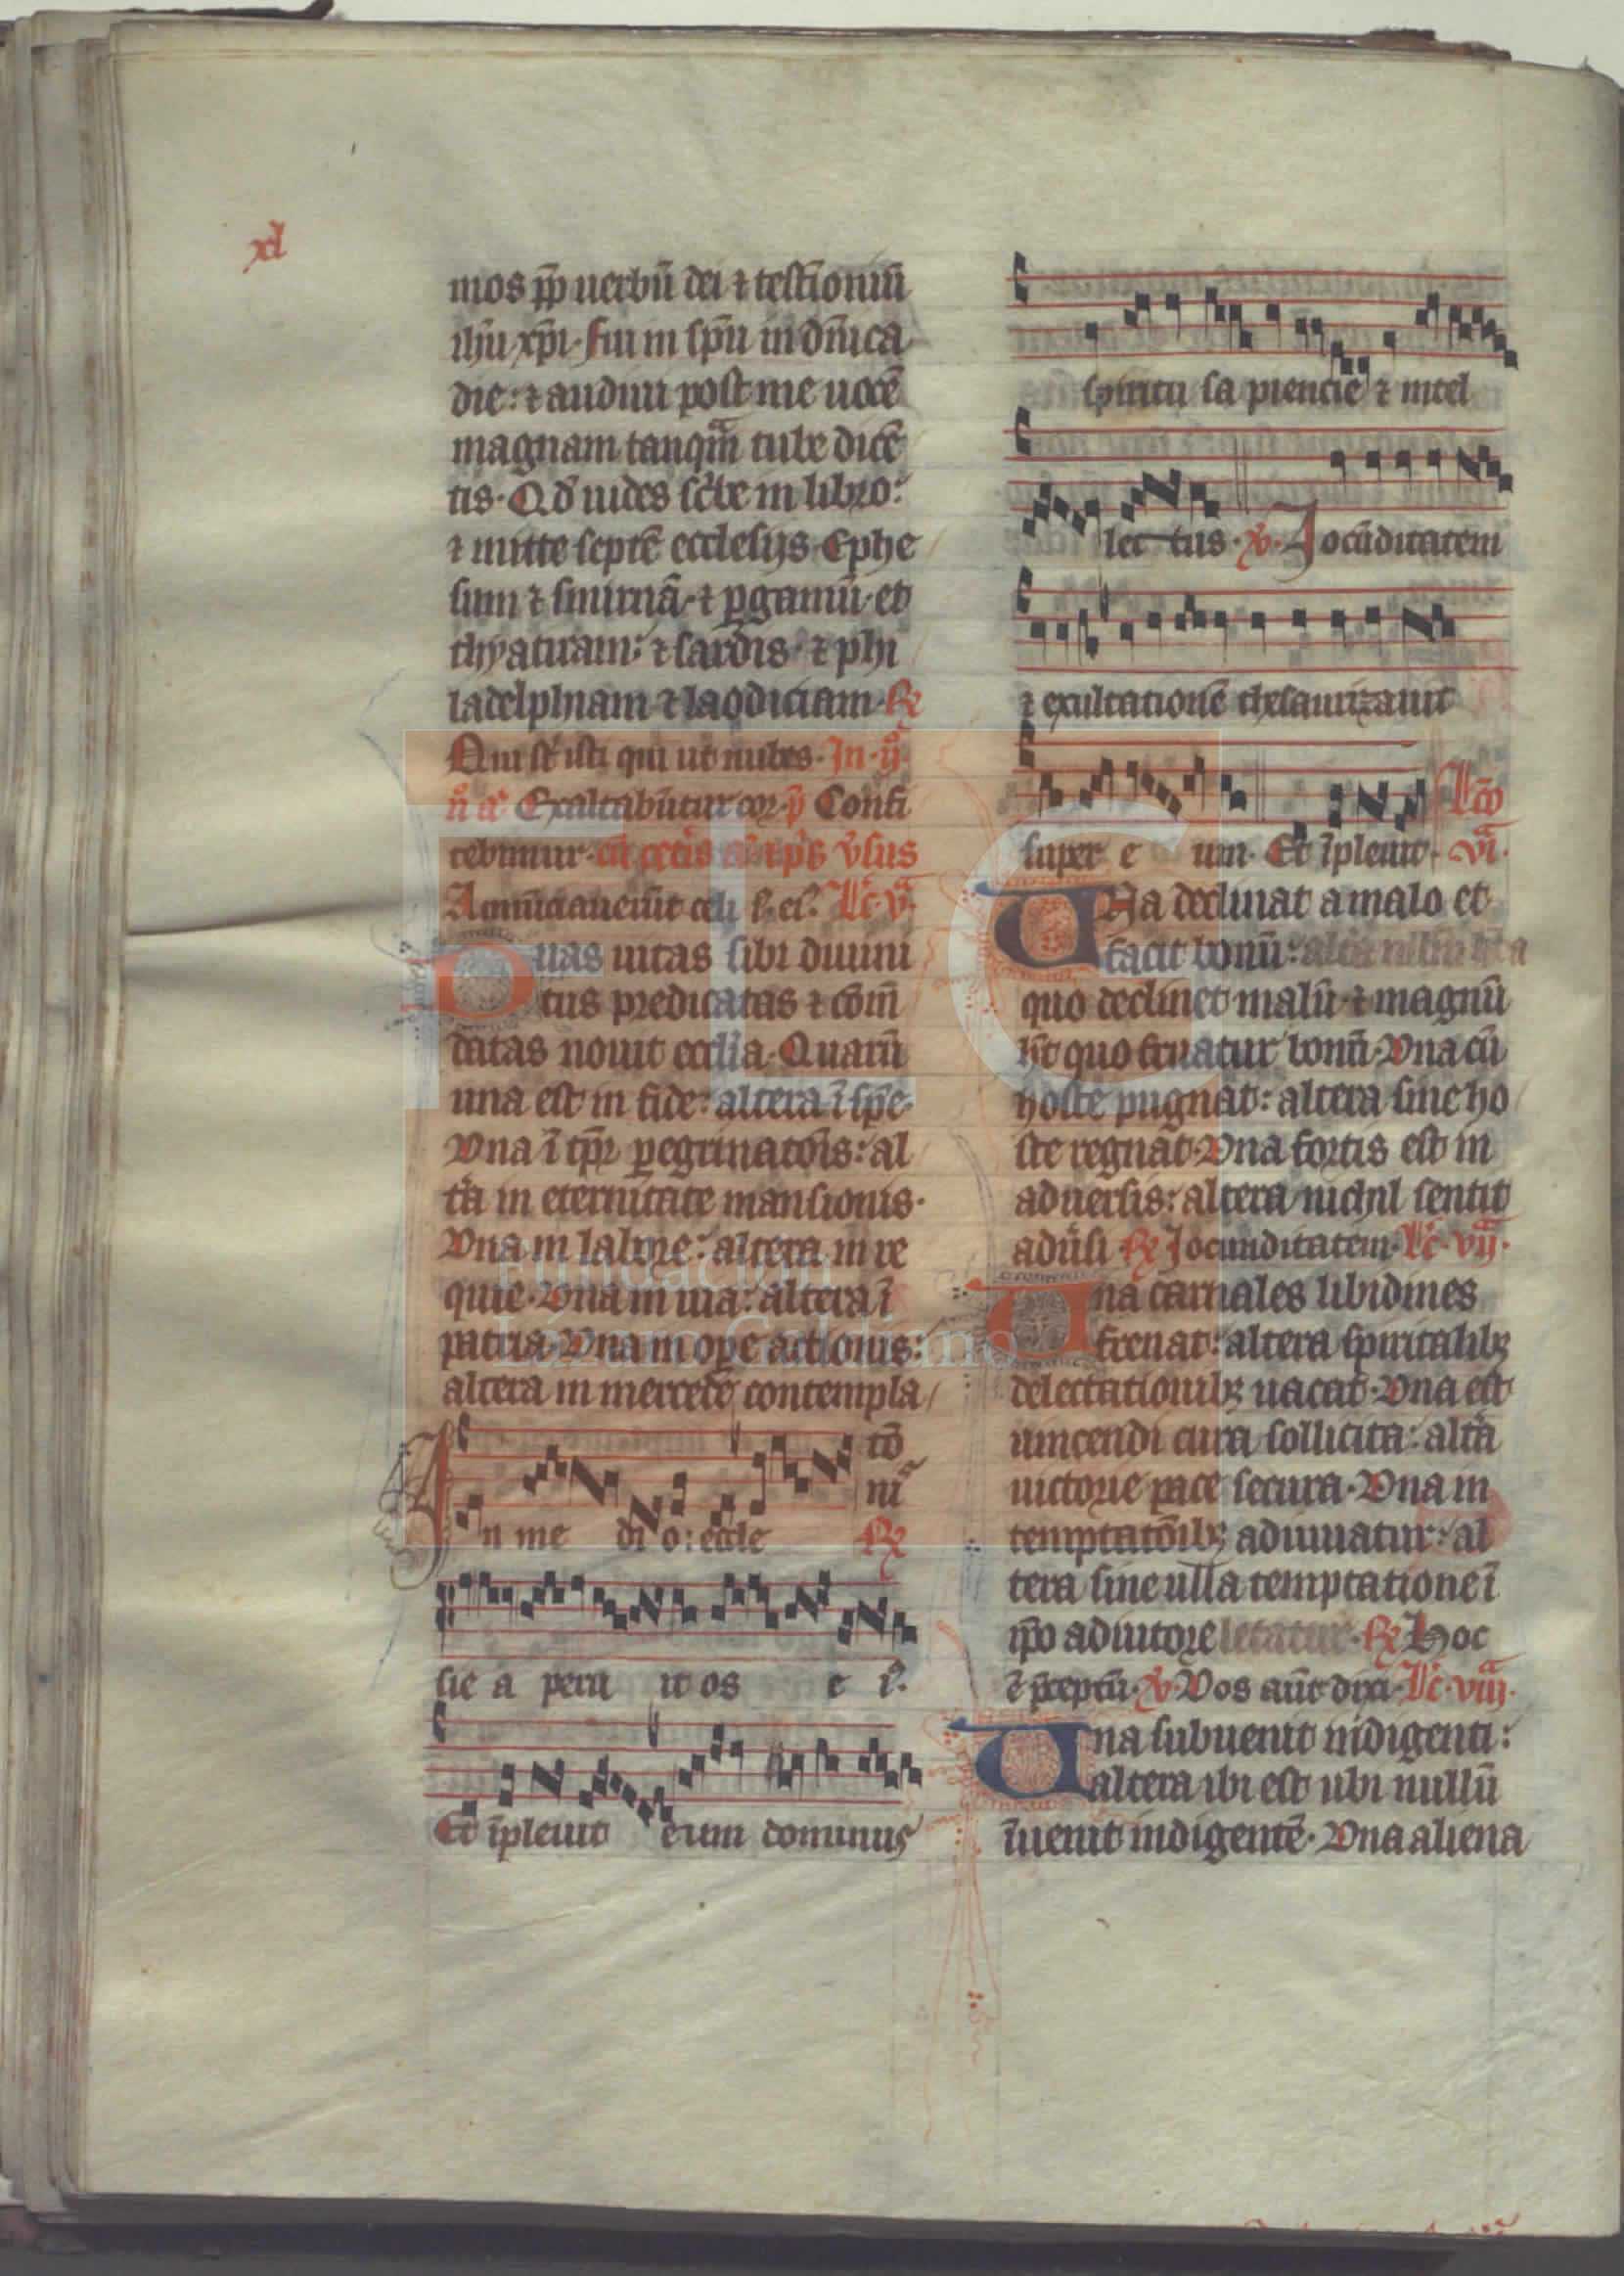 xl
mos ꝓp̄ uerbū dei ⁊ testīoniū
ihū xp̄i. Fui in sp̄u in dn̄ica
die: ⁊ audiui post me uocē
magnam tanqm̄ tube dicē
tis. Qd̄ uides sc̄be in libro:
⁊ mitte septē ecclesijs. Ephe
sum ⁊ smirnā. ⁊ ꝑgamū. et
thyatiram: ⁊ sardis. ⁊ phi
ladelphiam ⁊ laodiciam. ℟
Qui st̄ isti qui ut nubes. In .ij.
n̊ a͛ Exaltabūtur cor. p̄ Confi
tebimur. cū v̄sus
Annūciauerūt celi Lc̄. v.
Duas uitas sibi diuini
tus predicatas ⁊ cōm̄
datas nouit eccl̄ia. Quarū
una est in fide: altera ī sp̄e.
Vna ī tp̄r ꝑegrinatōis: al
tāa in eternitate mansionis.
Vna in labore: altera in re
quie. Vna in uia: altera ī
patria. Vna in oꝑe actionis:
altera in mercede contempla
tō
nis
In me di o: eccle ℟
sie a peru it os e i̾.
Et īpleuit eum dominus
spiritu sa piencie ⁊ intel
lec tus. ℣. Iocūditatem
⁊ exultationē thesaurizauit
super e um. Et īpleuit. Lc̄o
vi.
VNa declinat a malo et
facit bonū: altera nullū h̄t a
quo declinet malū. ⁊ magnū
h̄t quo fruatur bonū. Vna cū
hoste pugnat: altera sine ho
ste regnat. Vna fortis est in
aduersis: altera nichil sentit
adūsi ℟ Iocunditatem. Lc̄. vij.
Vna carnales libidines
frenat: altera spiritalibꝫ
delectationibꝫ uacat. Vna est
uincendi cura sollicita: altāa
uictorie pace secura. Vna in
temptatōibꝫ adiuuatur: al
tera sine ulla temptatione ī
ip̄o adiutore letatur. ℟ Hoc
ē p̄ceptū. ℣. Vos aūt dixi. Lc̄. viij.
Vna subuenit indigenti:
altera ibi est ubi nullū
īuenit indigentē. Vna aliena
FLG
Fundación
Lázaro Galdiano